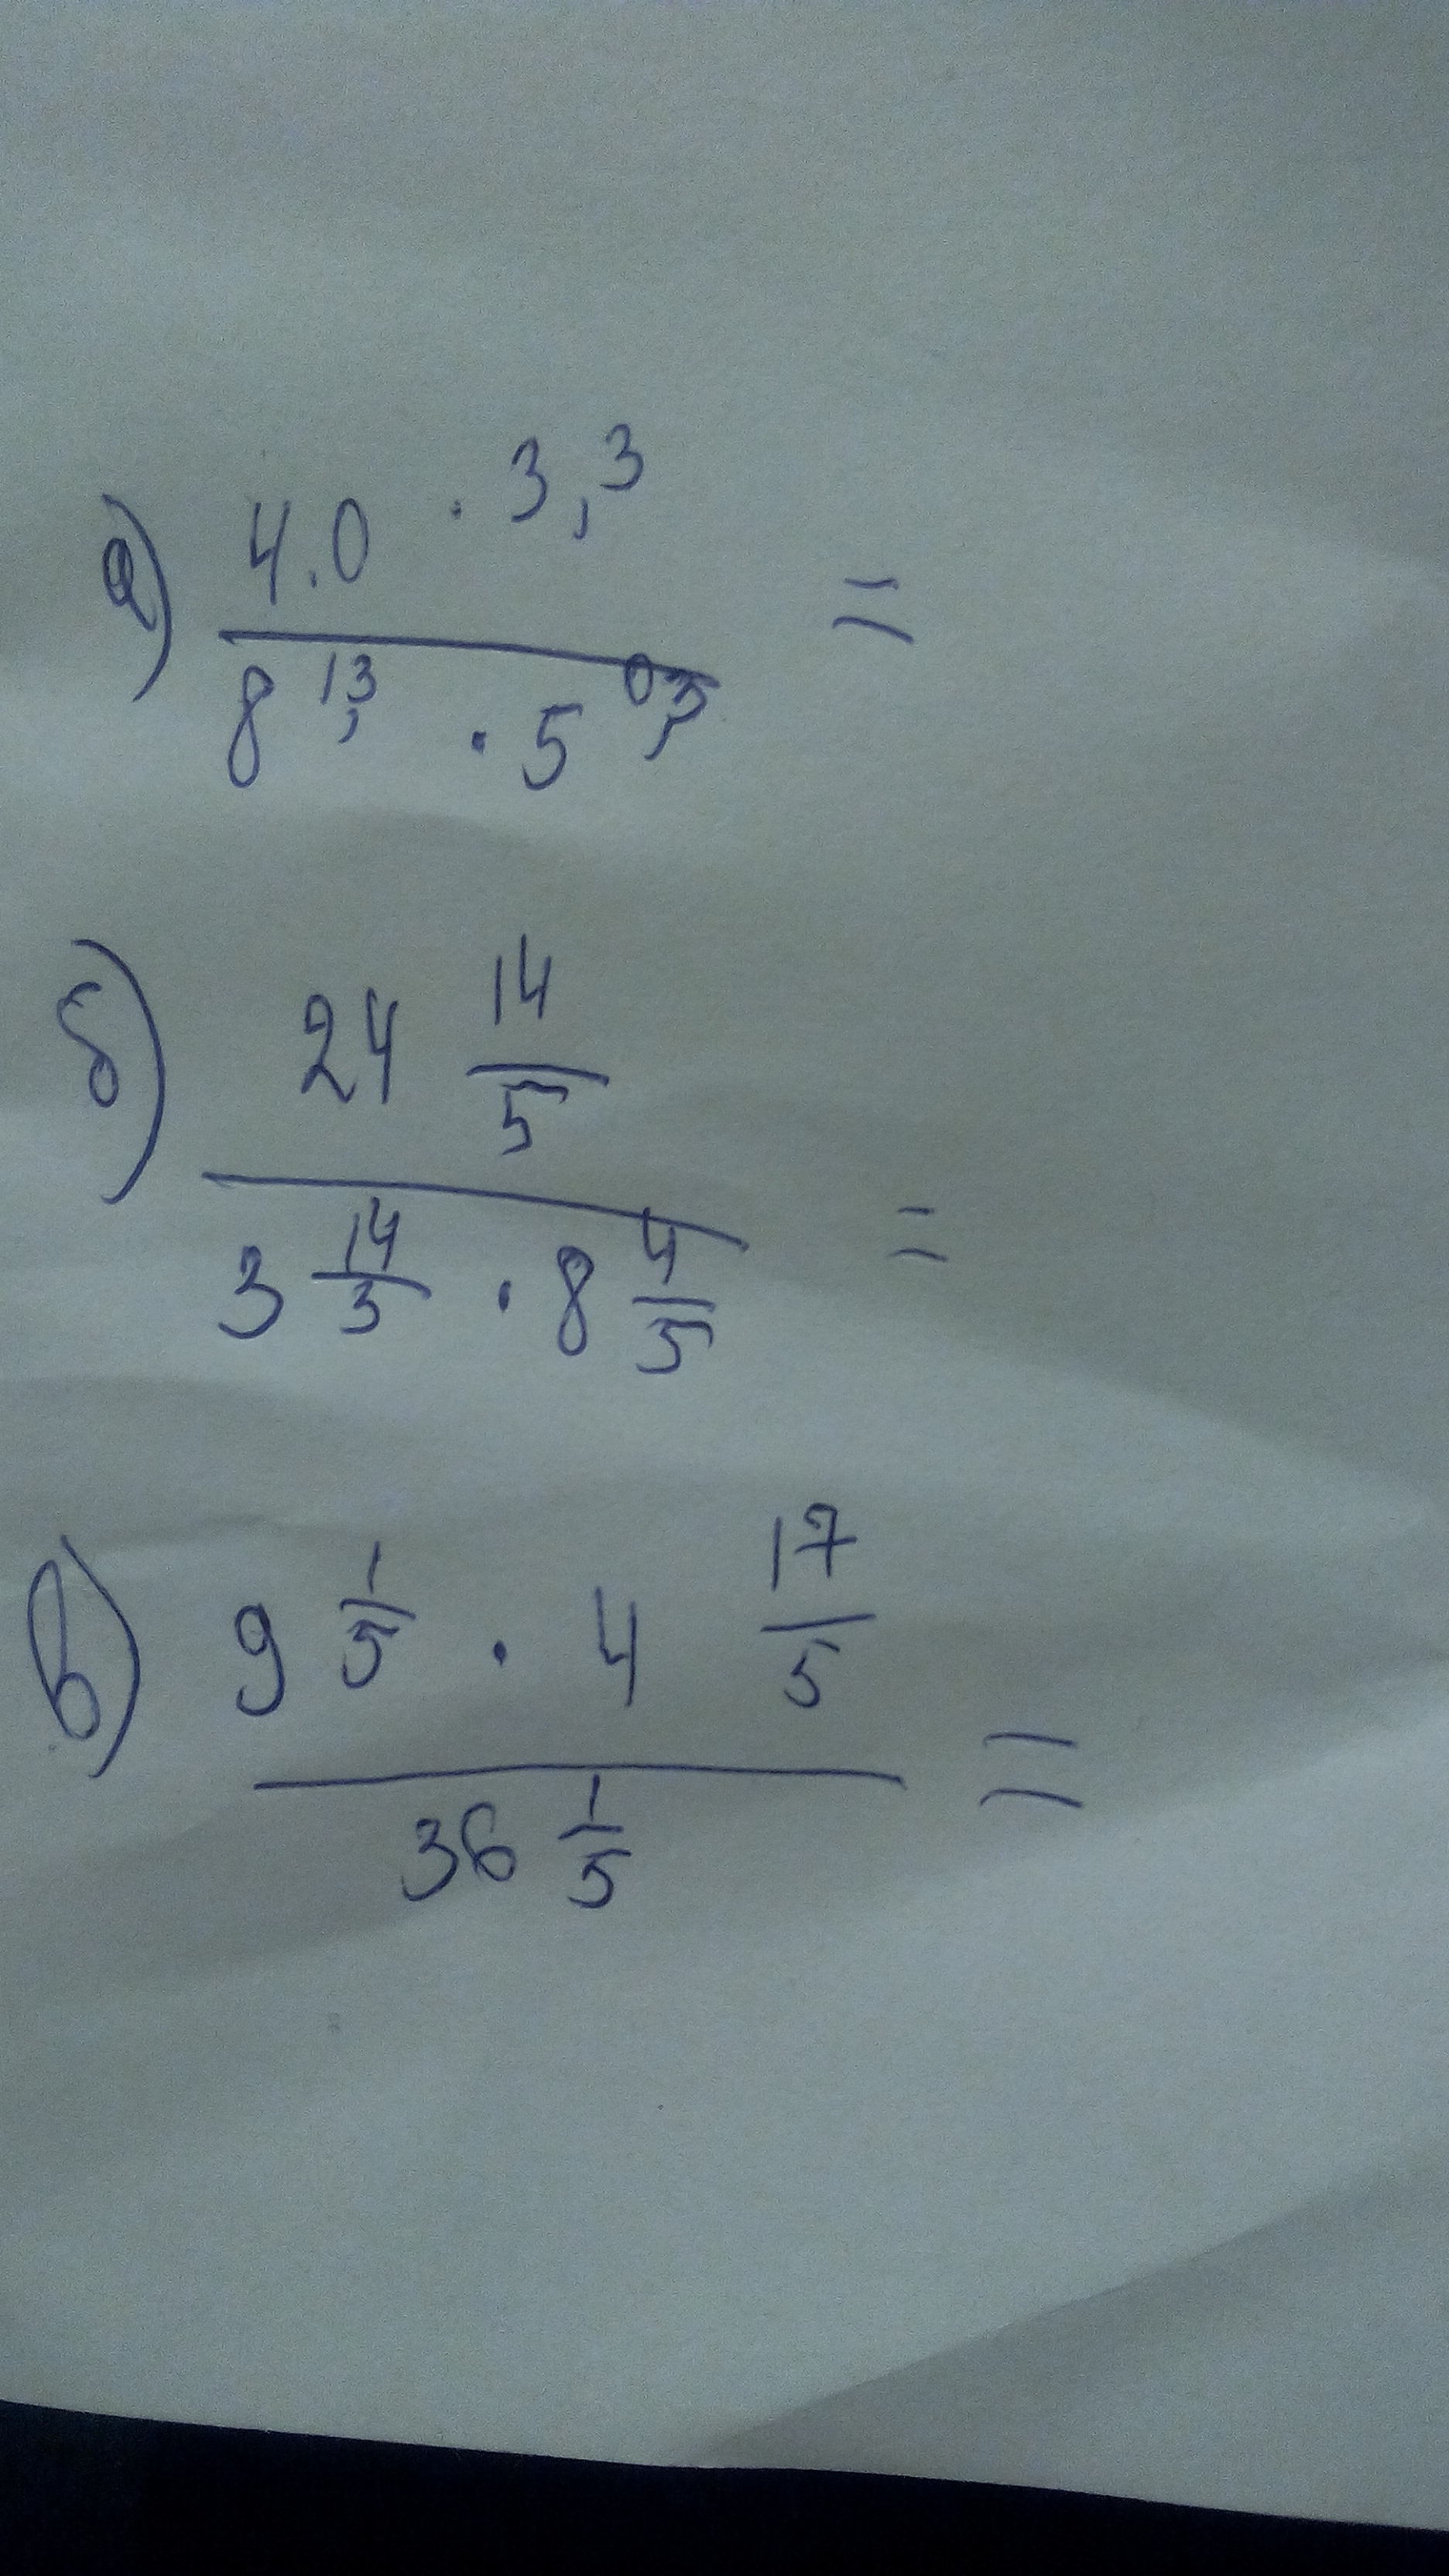 а) 4.0 · 3,3 =
8 1,3 · 5 0,3
б) 24 14/5 =
3 14/3 · 8 4/5
в) 9 1/5 · 4 17/5 =
36 1/5